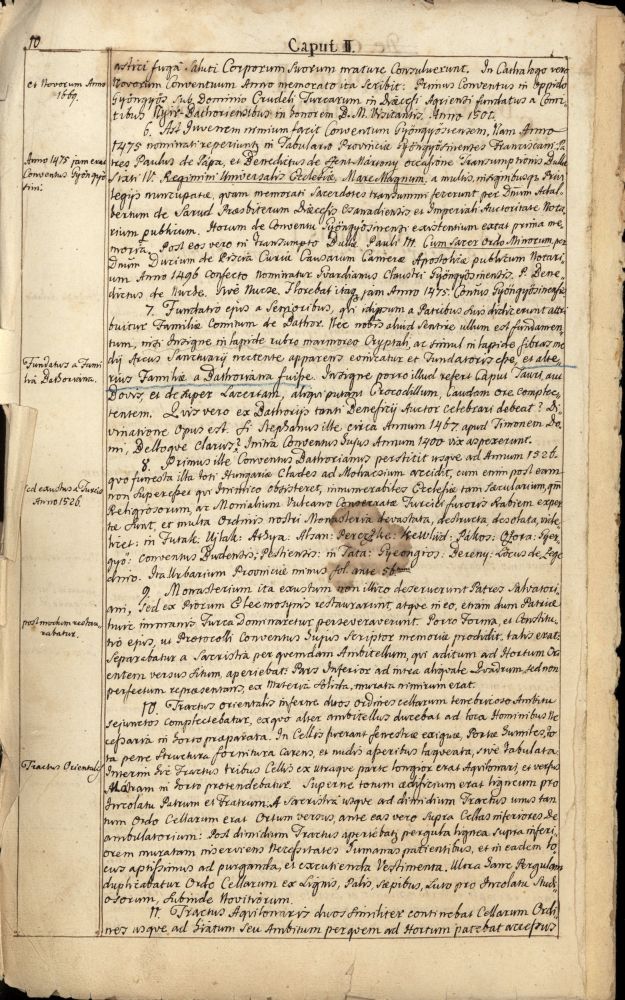 10
Caput II.
et Novorum Anno
1669.
Anno 1475 jam erat
Conventus Gyöngyö
sini.
Fundatus a Fami
lia Bathoriana.
sed exustus a Turcis
Anno 1526.
postmodum restau
rabatur.
Tractus Orientalis
fuga saluti Corporum suorum mature Consuluerunt. In Cathalogo vero
Novorum Conventuum Anno memorato ita scribit: Primus Conventus in Oppido
Gyöngyös sub Dominio Crudeli Turcarum in Diæcesi Agriensi fundatus a Comi
tibus Nyir-Bathoriensibus in honorem B. M. Visitantis. Anno 1501.
6. Ast Juventem nimium facit Conventum Gyöngyösiensem, Nam Anno
1475 nominati reperiuntur in Tabulario Provinciæ Gyöngyösinentes Franciscani Pa
tres Paulus de Papa, et Benedictus de Szent Martony occasione Transumptionis Bullæ
Sixti IV. Regimini Universalis Ecclesiæ, Mare Magnum, a multis, insignibusque Privi
legijs nuncupatæ, quam memorati Sacerdotes transummi fecerunt per Dnum Adal
bertum de Sarud Præsbiterum Diæcesis Csanadiensis et Imperiali Auctoritate Nota
rium publicum. Horum de Conventu Gyöngyösinensi existentium extat prima me
moria. Post eos vero in Transumpto Bullæ Pauli II. Cum Sacer Ordo Minorum, per
Dnum Ducium de Piscia Curiæ Causarum Cameræ Apostolicæ publicum Notari
um Anno 1496 Confecto nominatur Gvardianus Claustri Gyöngyösinensis P. Bene
dictus de Nurse. Sive Nurze. Florebat itaq jam Anno 1475. Convtus Gyöngyösinensis
7. Fundatio ejus a Senioribus, qui idipsum a Patribus suis didicerunt attri
buitur Familiæ Comitum de Bathor. Nec nobis aliud sentire ullum est fundamen
tum, nisi Insigne in lapide rubro marmoreo Cryptali, ac simul in lapide fibras me
dij Arcus Sanctuarij nectente, apparens convincat et Fundatoris esse, et alte
rius Familiæ a Bathoriana fuisse. Insigne porro illud refert Caput Tauri, aut
Bovis, et desuper Lacertam, aliqui putant Crocodillum, Caudam ore complec
tentem. Quis vero ex Bathorijs tanti Beneficij Auctor celebrari debeat? Di
vinatione opus est. Si Stephanus ille circa Annum 1467 apud Timonem Do
mi, Belloque Clarus? Initia Conventus hujus Annum 1400 vix aspexerunt.
8. Primus ille Conventus Bathorianus perstitit usque ad Annum 1526.
quo funesta illa toti Hungariæ Clades ad Mohacsium accidit, cum enim post eam
non superesset qui Inimico obsisteret, innumerabiles Ecclesiæ tam Sæcularium, qm
Religiosorum, ac Monialium Vulcano Consecratæ Turcici furoris Rabiem exper
tæ sunt, et multa Ordinis nostri Monasteria devastata, destructa, desolata, vide
licet: in Futak: Ujlak: Atsya: Atsan: Perczske: Kewlüd: Pakos: Ozora: Gyer
gyo: conventus Budensis; Pestiensis: in Tata: Gyeongios: Bereny: Locus de Zege
dino. Ita Urbarium Provinciæ minus fol. ante 56
9. Monasterium ita exustum non illico deseruerunt Patres Salvatori
ani, sed ex Piorum Eleemosynis restaurarunt, atque in eo, etiam dum Patriæ
hunc immanis Turca dominaretur perseveraverunt. Porro Forma, et Constitu
tio ejus, ut Protocolli Conventus hujus Scriptor memoriæ prodidit, talis erat.
Separabatur a Sacristia per quemdam Ambitellum, qui aditum ad Hortum Ori
entem versus situm, aperiebat: Pars Inferior ad intra aliquale Quadrum, sed non
perfectum repræsentans, ex Materia solida, murata nimirum erat.
10. Tractus orientalis inferne duos ordines cellarum tenebricoso Ambitu
sejunctos complectebatur, ex quo alter ambitellus ducebat ad loca Hominibus Ne
cessaria in horto præparata. In Cellis fuerant fenestræ exiguæ, Portæ humiles, to
ta pene Structura fornitura carens, et nudis asseribus laqueata, sive tabulata.
Interim hic Tractus tribus Cellis ex utraque parte longior erat Aquilonari, et versus
Matram in horto protendebatur. Superne totum ædificium erat ligneum pro
Incolatu Patrum et Fratrum: A Sacristia usque ad dimidium Tractus unus tan
tum Ordo Cellarum erat Ortum versus, ante eas vero supra Cellas inferiores De
ambulatorium: Post dimidium Tractus aperiebat pergula lignea supra inferi
orem muratam inserviens Necessitates humanas patientibus, et in eadem lo
cus aptissimus ad purganda, et excutienda Vestimenta. Ultra hanc Pergulam
duplicabatur Ordo Cellarum ex Lignis, Palis, sæpibus, Luto pro Incolatu Studi
osorum, subinde Novitiorum.
11. Tractus Aquilonaris duos similiter continebat Cellarum Ordi
nes usque ad Gradum seu Ambitum per quem ad Hortum patebat accessus